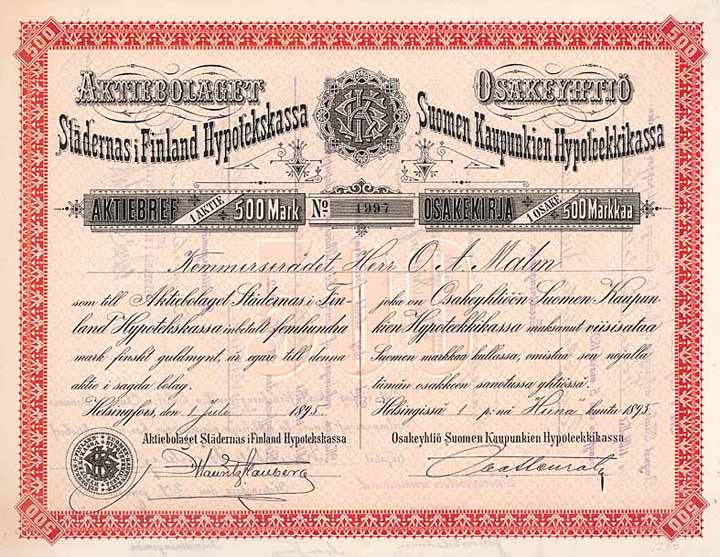 500 500
AKTIEBOLAGET
Städernas i Finland Hypotekskassa
OSAKEYHTIÖ
Suomen Kaupunkien Hypoteekkikassa
AKTIEBREF 1 AKTIE 500 Mark No 1997 OSAKEKIRJA 1 OSAKE 500 Markkaa
Kommerserådet Herr O. A. Malm
som till Aktiebolaget Städernas i Fin-
land Hypotekskassa inbetalt femhundra
mark finskt guldmynt, är ägare till denna
aktie i sagda bolag.
Helsingfors, den 1 Juli 1895.
joka on Osakeyhtiöön Suomen Kaupun-
kien Hypoteekkikassa maksanut viisisataa
Suomen markkaa kullassa, omistaa sen nojalla
tämän osakkeen sanotussa yhtiössä.
Helsingissä 1 p:nä Heinä kuuta 1895.
Aktiebolaget Städernas i Finland Hypotekskassa
Osakeyhtiö Suomen Kaupunkien Hypoteekkikassa
500 500